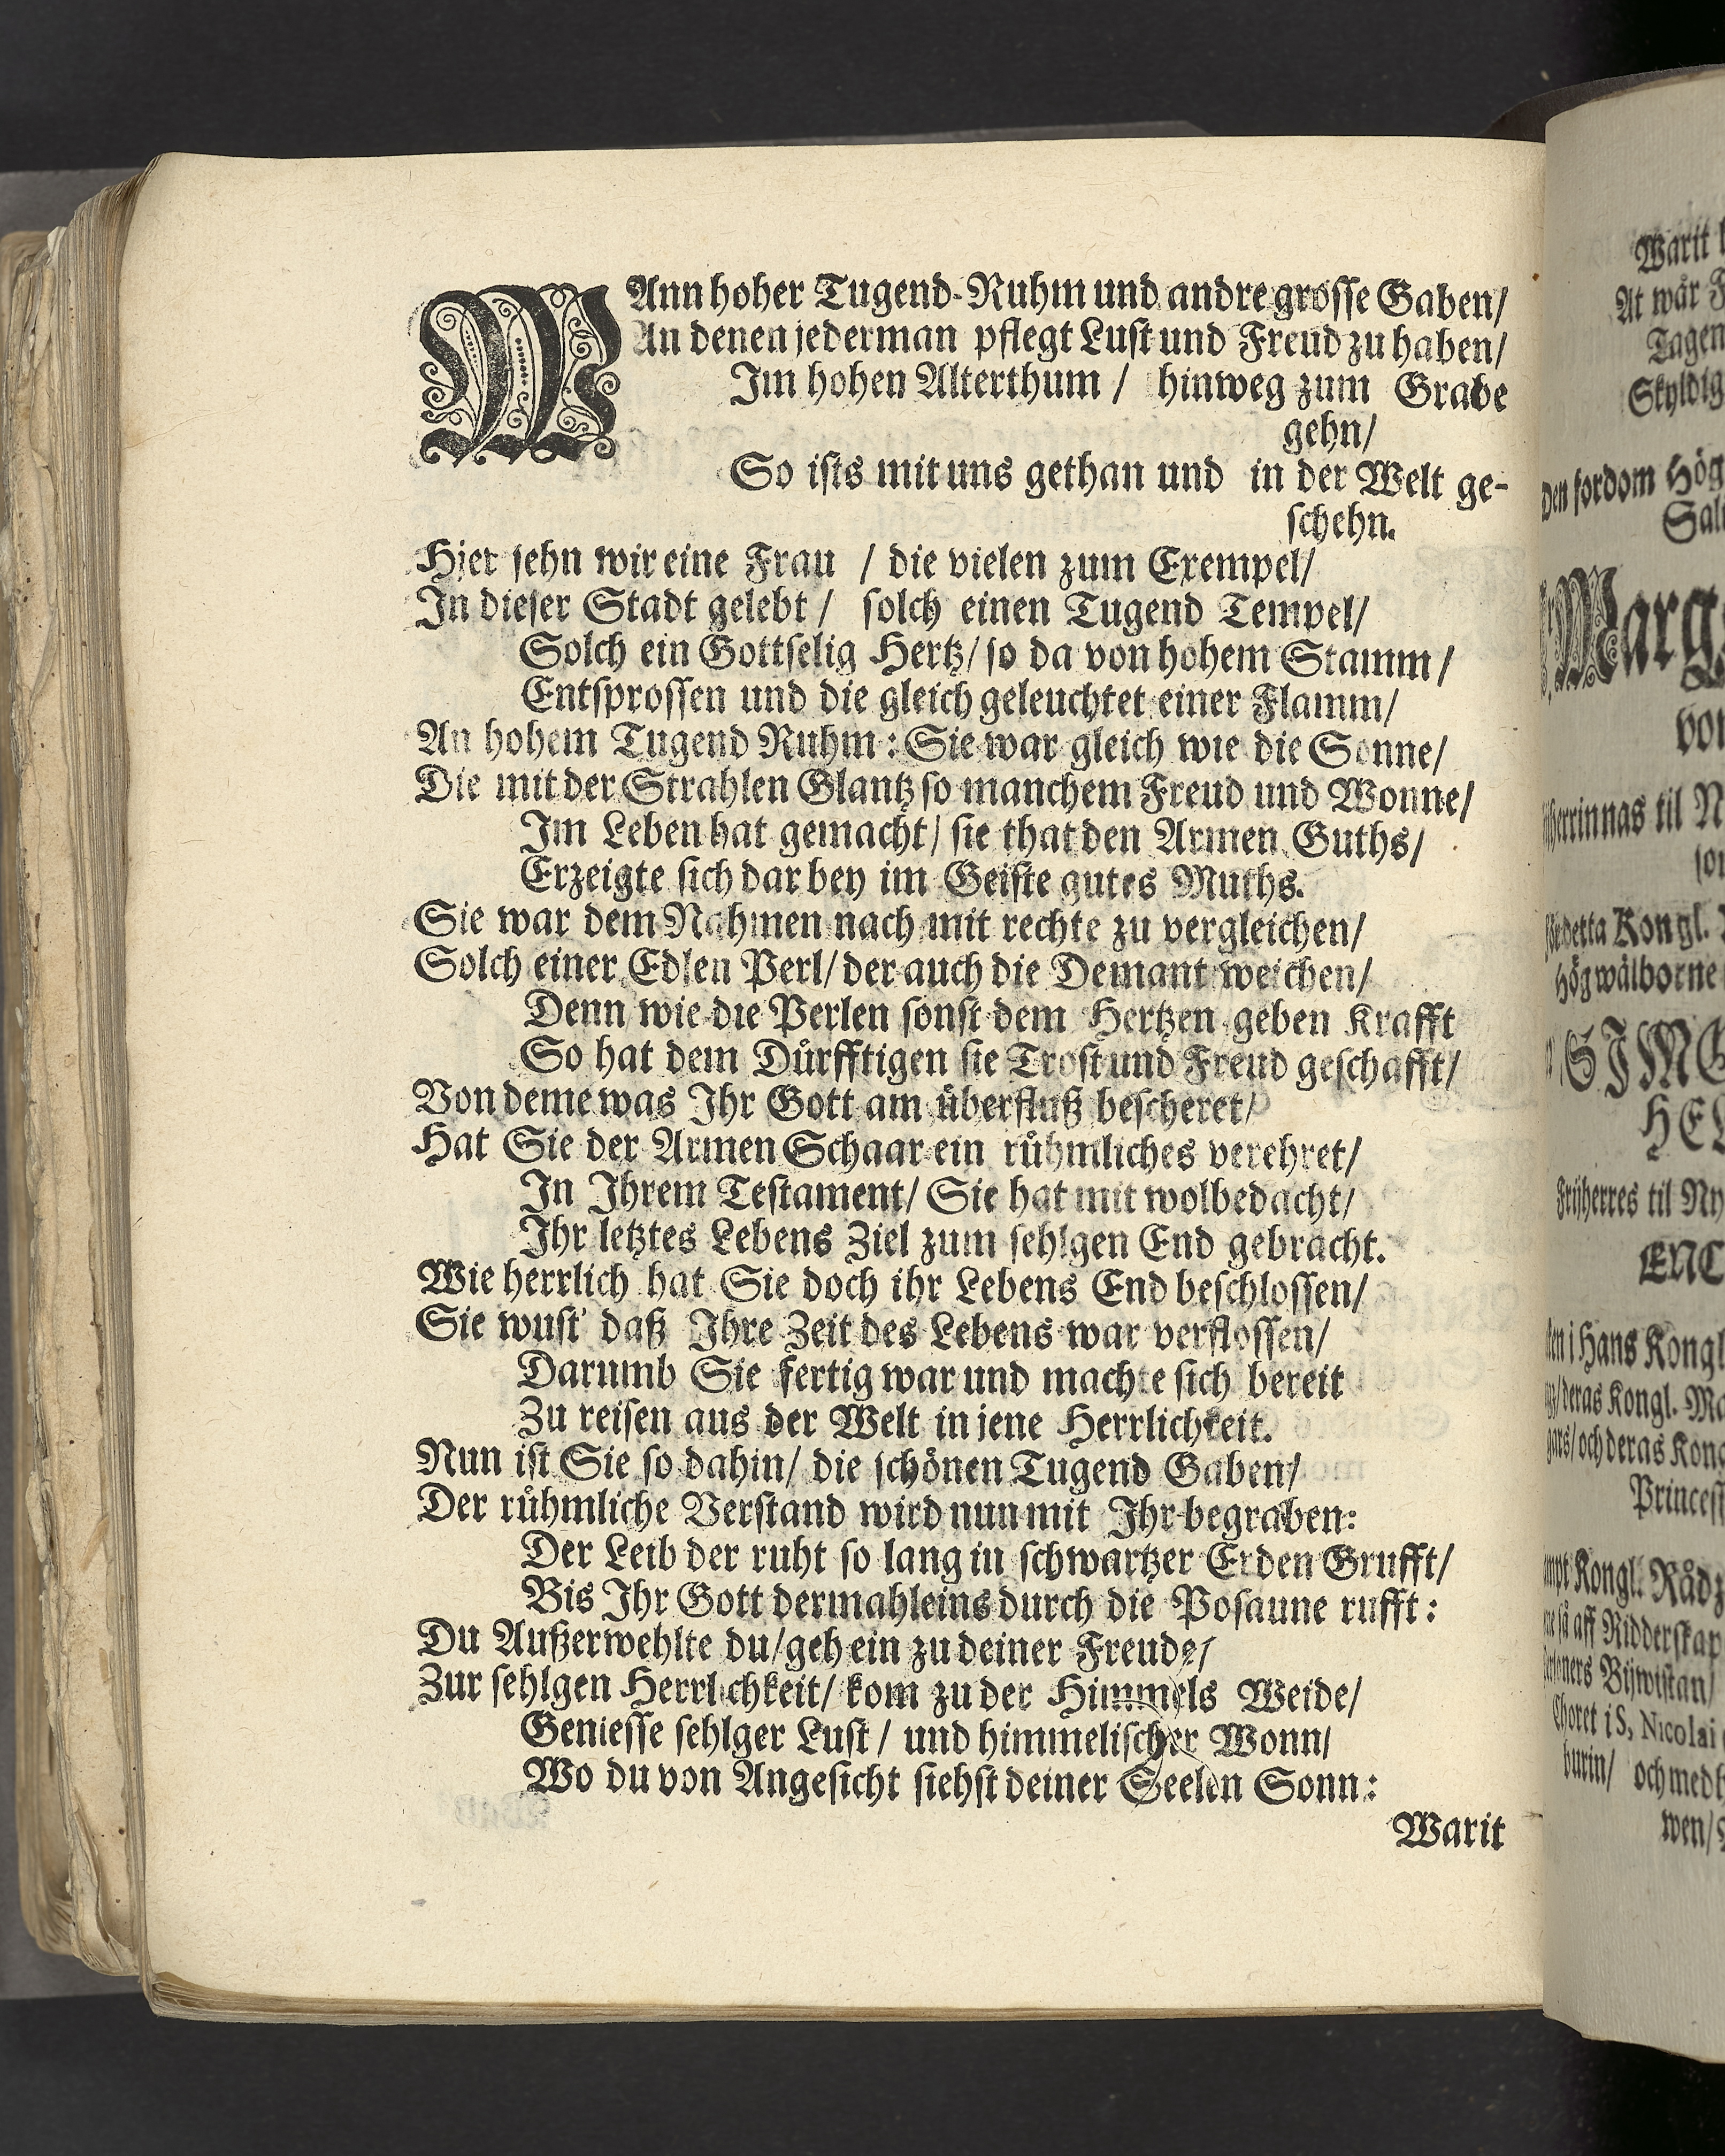 WAnn hoher Tugend-Ruhm und andre grosse Gaben/
An denen jederman pflegt Lust und Freud zu haben/
Im hohen Alterthum / hinweg zum Grabe
gehn/
So ists mit uns gethan und in der Welt ge-
schehn.
Hier sehn wir eine Frau / die vielen zum Exempel/
In dieser Stadt gelebt / solch einen Tugend Tempel/
Solch ein Gottselig Hertz/ so da von hohem Stamm /
Entsprossen und die gleich geleuchtet einer Flamm/
An hohem Tugend Ruhm : Sie war gleich wie die Sonne/
Die mit der Strahlen Glantz so manchem Freud und Wonne/
Im Leben hat gemacht/ sie that den Armen Guths/
Erzeigte sich dar bey im Geiste gutes Muths.
Sie war dem Nahmen nach mit rechte zu vergleichen/
Solch einer Edlen Perl/ der auch die Demant weichen/
Denn wie die Perlen sonst dem Hertzen geben Krafft
So hat dem Důrfftigen sie Trost und Freud geschafft/
Von deme was Ihr Gott am ůberfluß bescheret/
Hat Sie der Armen Schaar ein růhmliches verehret/
In Ihrem Testament/ Sie hat mit wolbedacht/
Ihr letztes Lebens Ziel zum sehlgen End gebracht.
Wie herrlich hat Sie doch ihr Lebens End beschlossen/
Sie wust' daß Ihre Zeit des Lebens war verflossen/
Darumb Sie fertig war und machte sich bereit
Zu reisen aus der Welt in jene Herrlichkeit.
Nun ist Sie so dahin/ die schönen Tugend Gaben/
Der růhmliche Verstand wird nun mit Ihr begraben:
Der Leib der ruht so lang in schwartzer Erden Grufft/
Bis Ihr Gott dermahleins durch die Posaune rufft :
Du Außerwehlte du/ geh ein zu deiner Freude/
Zur sehlgen Herrlichkeit/ kom zu der Himmels Weide/
Geniesse sehlger Lust / und himmelischer Wonn/
Wo du von Angesicht siehst deiner Seelen Sonn :
Warit
Warit
At wår
Tagen
Skyldig
Den fordom Hög
Marg
til N
Kongl.
Högwälborne
SIMO
HEL
Friherres til Ny
ENC
i Hans Kongl
deras Kongl. Ma
och deras Kong
Princess
Kongl. Rådz
aff Ridderskap
Bijwistan/
Choret i S. Nicolai
och med